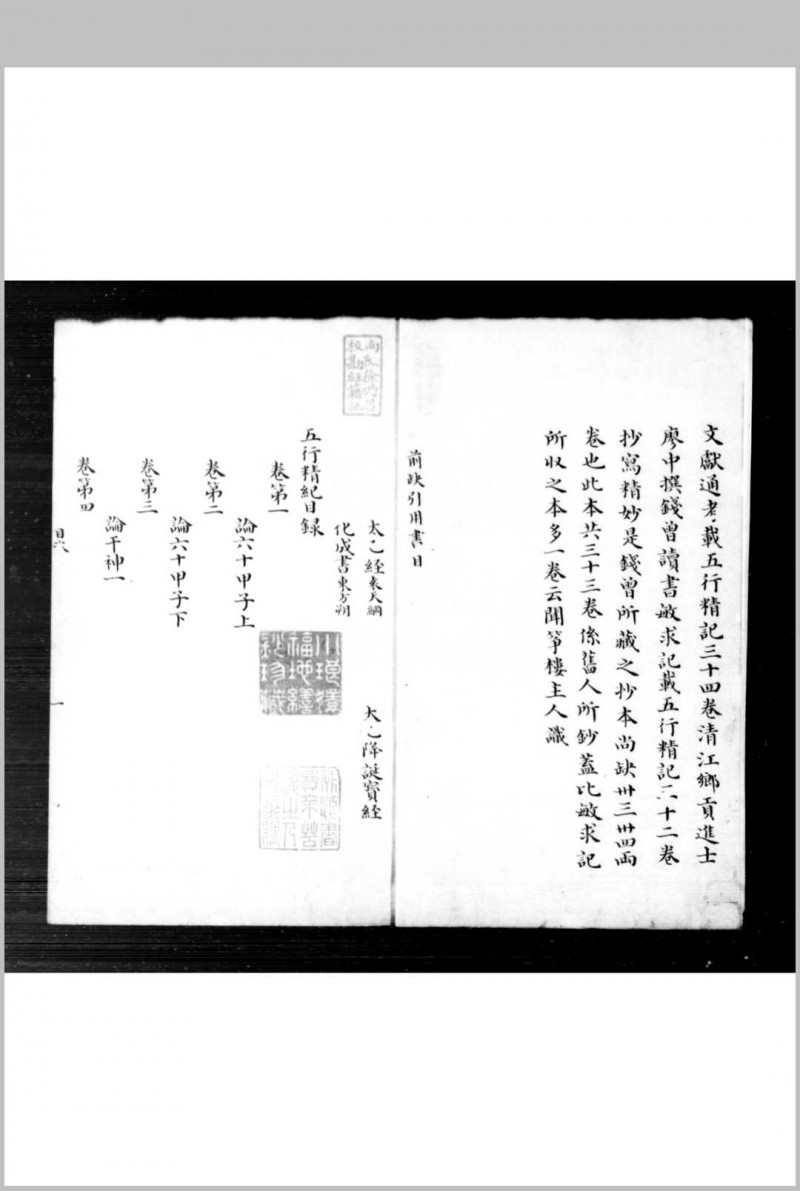 文獻通考載五行精記三十四卷清江鄉貢進士
廖中撰錢曾讀書敏求記載五行精記三十二卷
抄寫精妙是錢曾所藏之抄本尚缺卅三卅四兩
卷也此本共三十三卷係舊人所鈔蓋比敏求記
所收之本多一卷云閒箏樓主人識
前缺引用書目
太乙經袁天綱 太乙降誕寶經
化成書東方朔
五行精紀目録
卷第一
論六十甲子上
卷第二
論六十甲子下
卷第三
論干神一
卷第四
目次 一
小瑯嬛
福地繕
鈔珍藏